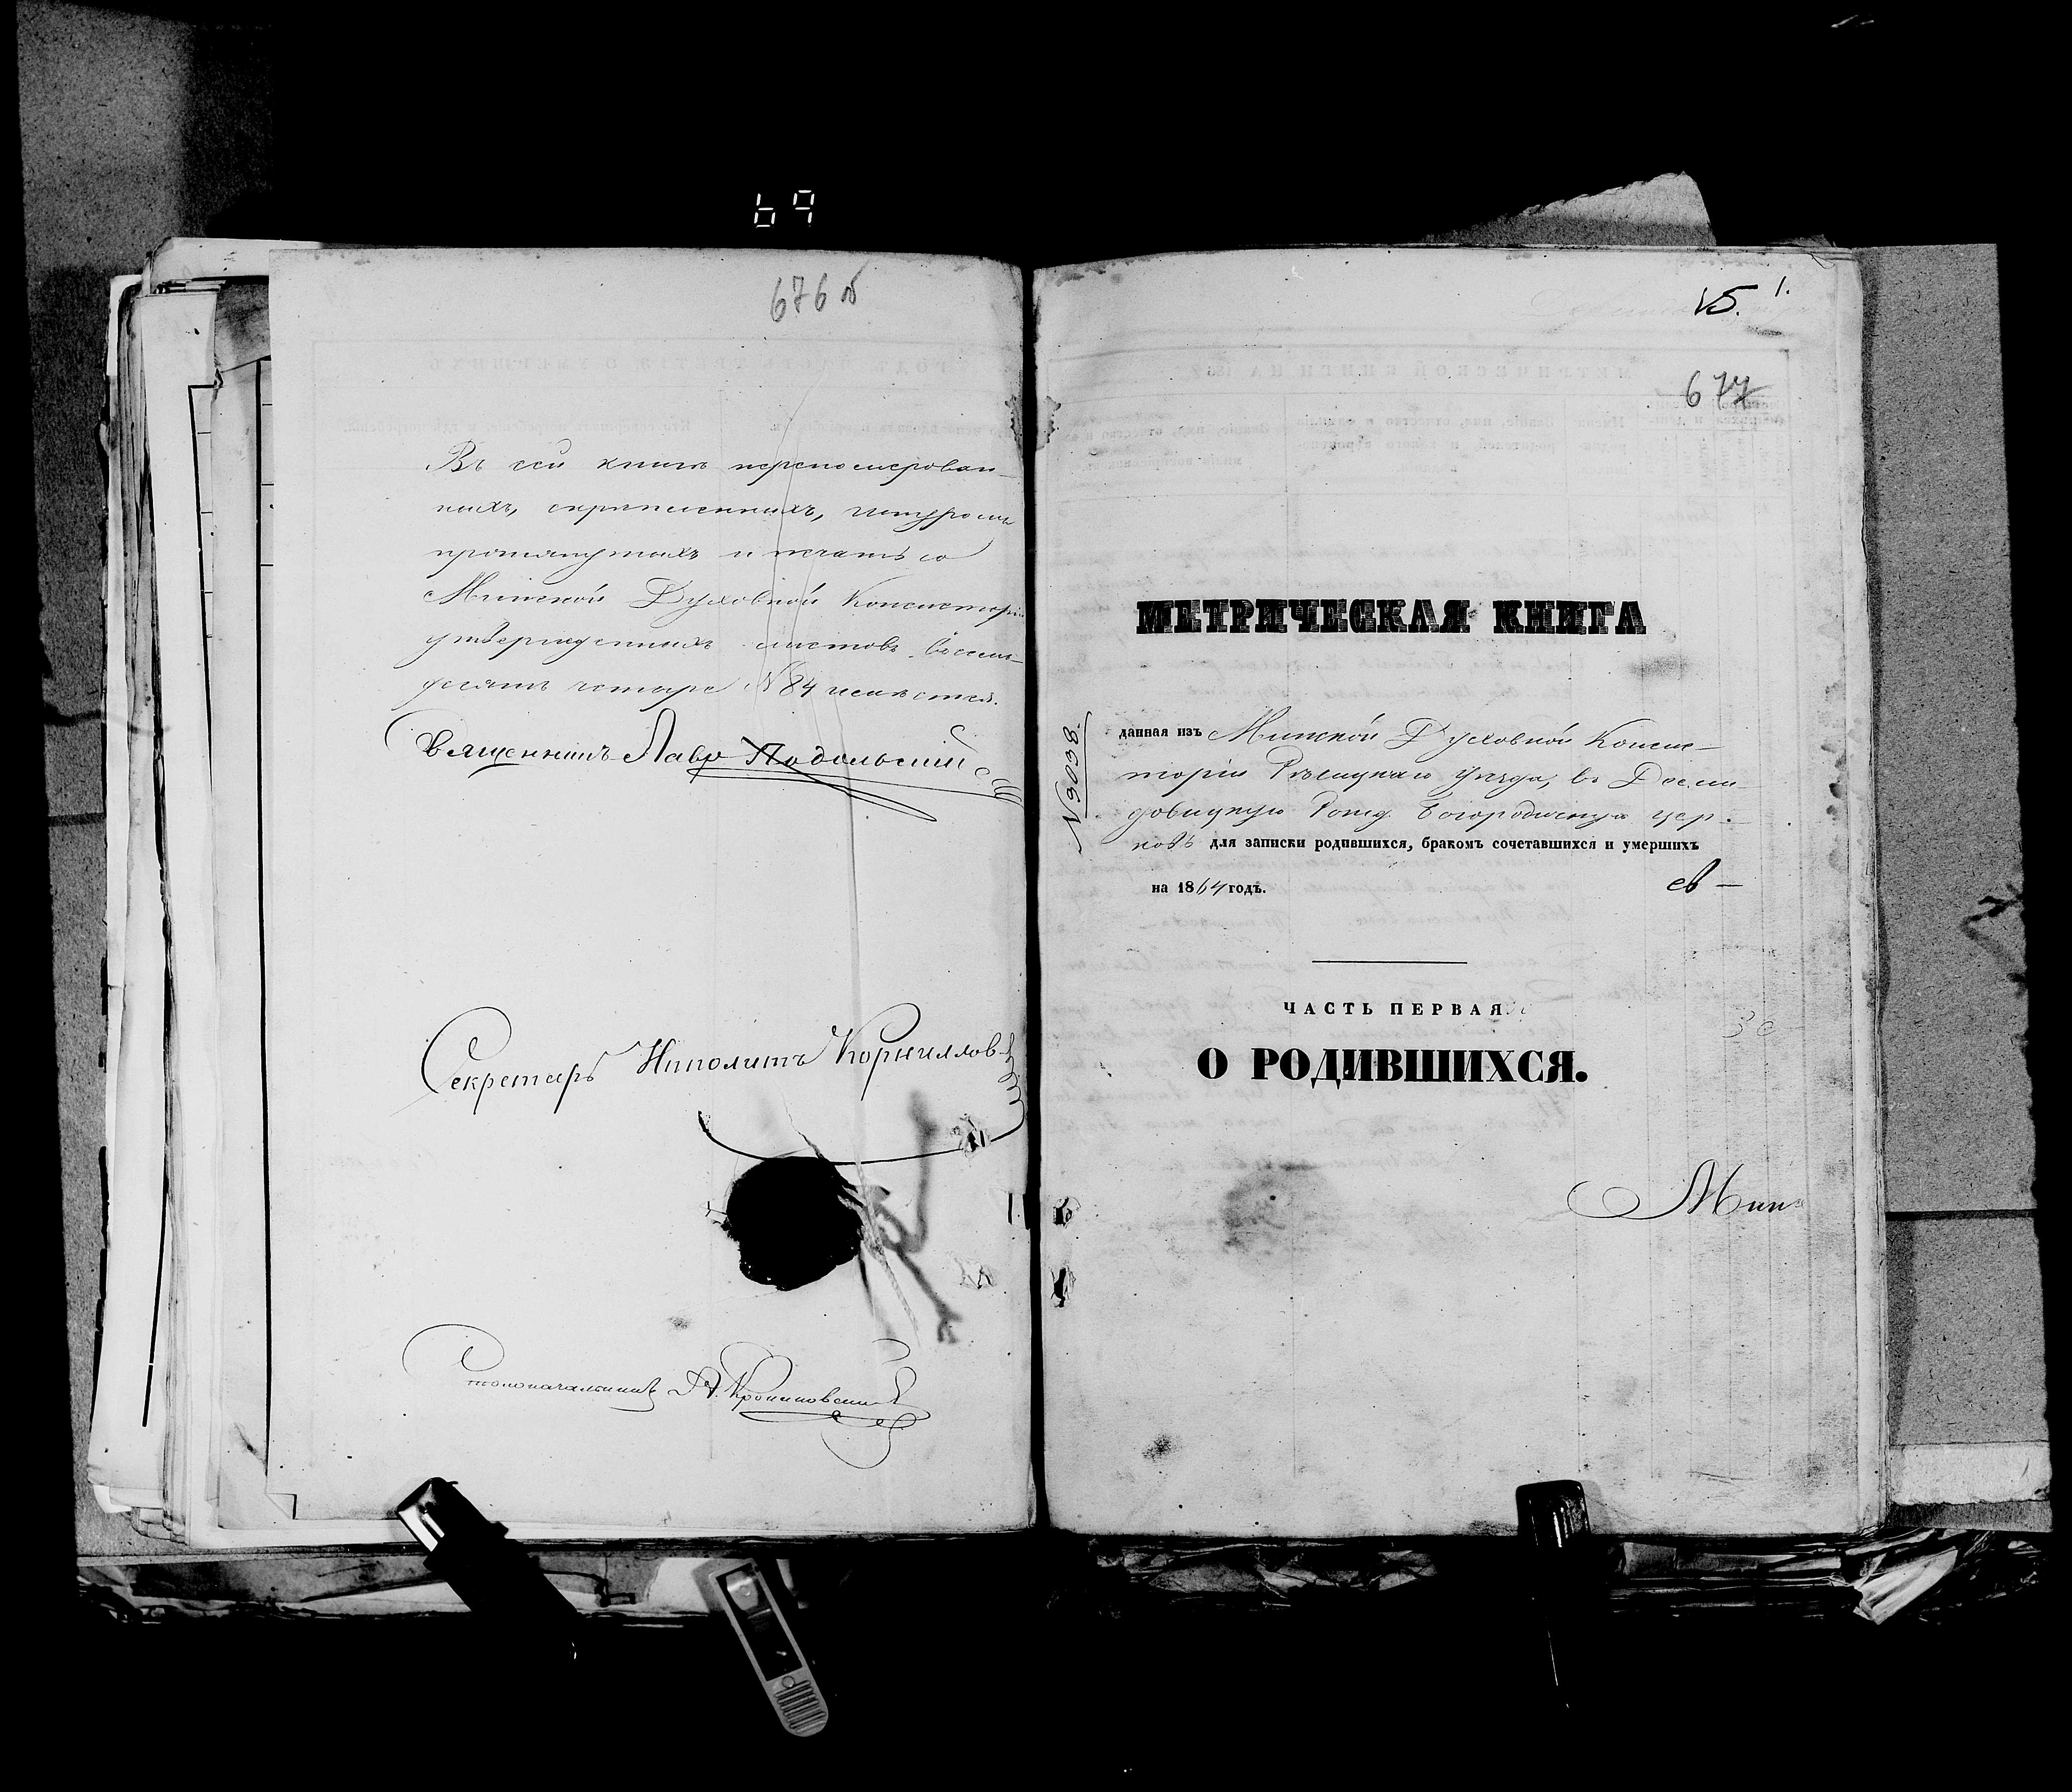 69
676 об
Въ сей книгѣ перепомерован-
ныхъ, скрѣпленныхъ, шнуромъ
протянутыхъ и печатью
Минской Духовной Консисторіи
утвержденныхъ листовъ восемь-
десятъ четыре № 84
Священникъ Лавр Подольскій
Секретарь Иполитъ Корниллов
Столоначальникъ
15. 1.
677
МЕТРИЧЕСКАЯ КНИГА
№ 9038.
данная изъ Минской Духовной Консис-
торіи Рѣчицкаго уѣзда, въ
Рожд. Богородичную цер-
ковь для записки родившихся, бракомъ сочетавшихся и умершихъ
на 1864 годъ.
ЧАСТЬ ПЕРВАЯ
О РОДИВШИХСЯ.
Мин